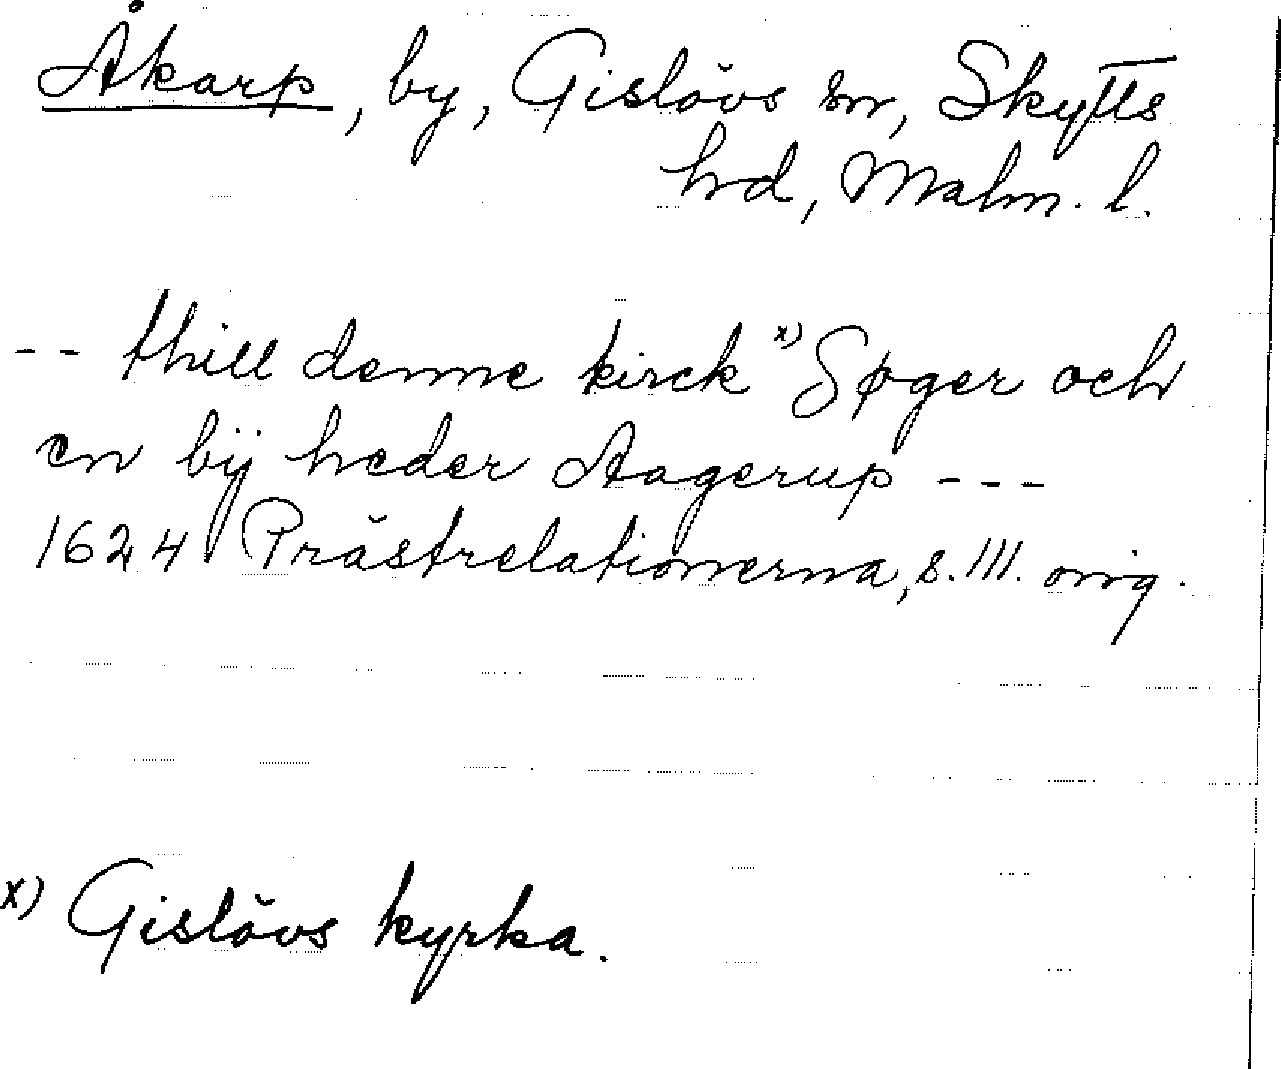 Åkarp, by, Gislövs sn, Skytts
hd, Malm. l.
-- thill denne kirck x) Søger och
en bÿ heder Aagerup ---
1624 Prästrelationerna, s. 111. orig.
x) Gislövs kyrka.